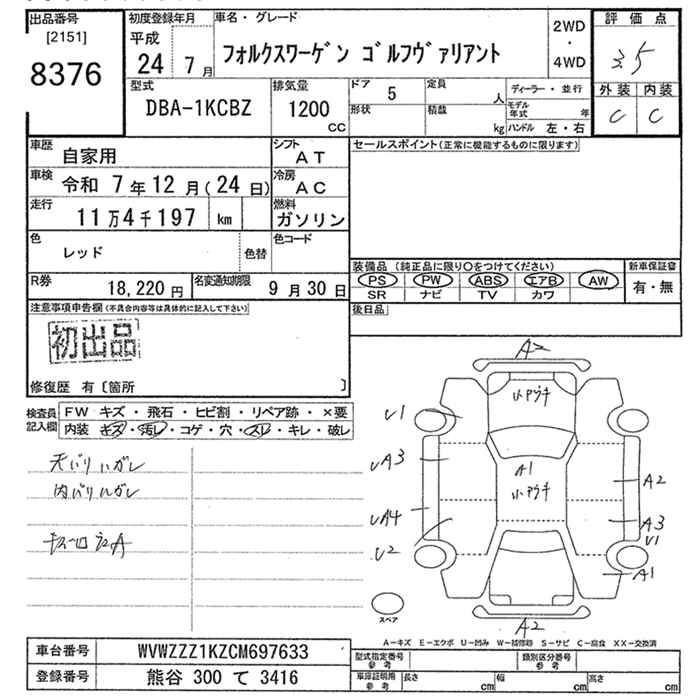 出品番号
[2151]
8376
初度登録年月
平成
24 7月
車名・グレード
フォルクスワーゲン ゴルフヴァリアント
2WD
・
4WD
評価点
3.5
外装 内装
C C
型式
DBA-1KCBZ
排気量
1200
CC
ドア
5
定員
人
形状
積載
kg
ディーラー・並行
モデル年式 年
ハンドル 左・右
車歴
自家用
シフト
AT
車検
令和 7年12月(24日)
冷房
AC
走行
11万4千197 km
燃料
ガソリン
色
レッド
色替
色コード
R券
18,220円
名変通知期限
9月30日
セールスポイント(正常に機能するものに限ります)
装備品 (純正品に限り○をつけてください)
PS PW ABS エアB AW
SR ナビ TV カワ
新車保証書
有・無
後日品
注意事項申告欄(不具合内容等は具体的に記入して下さい)
初出品
修復歴 有〔箇所 〕
検査員記入欄
FW キズ・飛石・ヒビ割・リペア跡・×要
内装 キズ・汚レ・コゲ・穴・スレ・キレ・破レ
天バリハガレ
内バリハガレ
A2
小アヅキ
U1
UA3
A1
小アヅキ
A2
UA4
A3
U1
U2
A1
A2
スペア
A―キズ E―エクボ U―凹み W―補修跡 S―サビ C―腐食 XX―交換済
車台番号
WVWZZZ1KZCM697633
登録番号
熊谷 300 て 3416
型式指定番号
参考
類別区分番号
参考
車庫証明用
参考
長さ cm
幅 cm
高さ cm